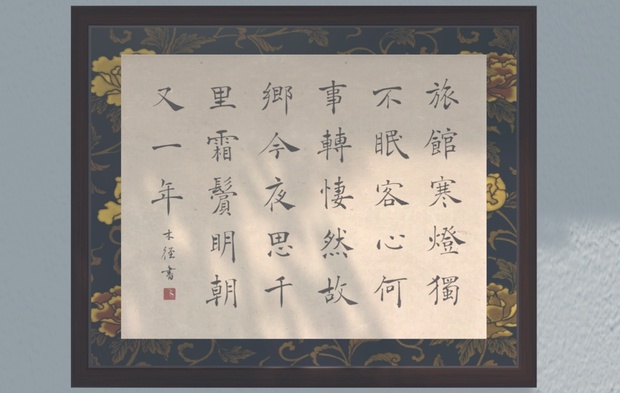 旅館寒燈獨
不眠客心何
事轉悽然故
鄉今夜思千
里霜鬢明朝
又一年
木徑書